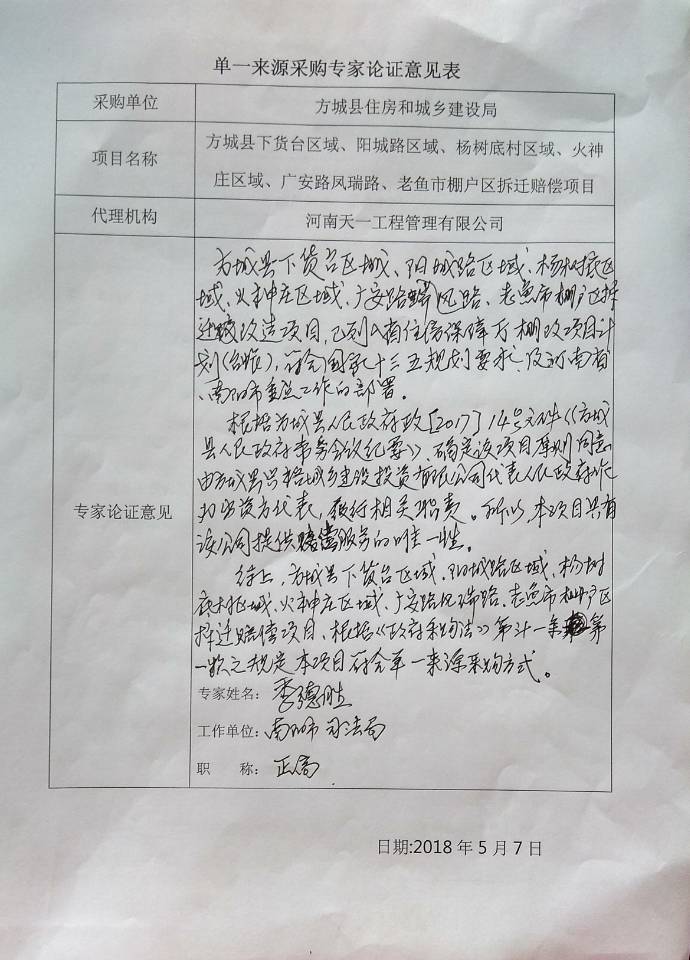 单一来源采购专家论证意见表
采购单位
方城县住房和城乡建设局
项目名称
方城县下货台区域、阳城路区域、杨树底村区域、火神
庄区域、广安路凤瑞路、老鱼市棚户区拆迁赔偿项目
代理机构
河南天一工程管理有限公司
专家论证意见
方城县下货台区域、阳城路区域、杨树底区
域、火神庄区域、广安路凤路、老鱼市棚户区拆
迁改造项目,已列入省住房保障万棚改项目计
划(台账),符合国家十三五规划要求及河南省
、南阳市重点工作的部署。
根据方城县人民政府政[2017]14号文件《方城
县人民政府常务会议纪要》、确定该项目原则同意
由方城县兴裕城乡建设投资有限公司代表人民政府作
为出资方代表,履行相关职责。所以,本项目只有
该公司提供赔偿服务的唯一性。
综上,方城县下货台区域、阳城路区域、杨树
底村区域、火神庄区域、广安路凤瑞路、老鱼市棚户区
拆迁赔偿项目、根据《政府采购法》第卅一条第
一款之规定本项目符合单一来源采购方式。
专家姓名: 李德胜
工作单位: 南阳市司法局
职 称: 正高
日期:2018 年 5 月 7 日